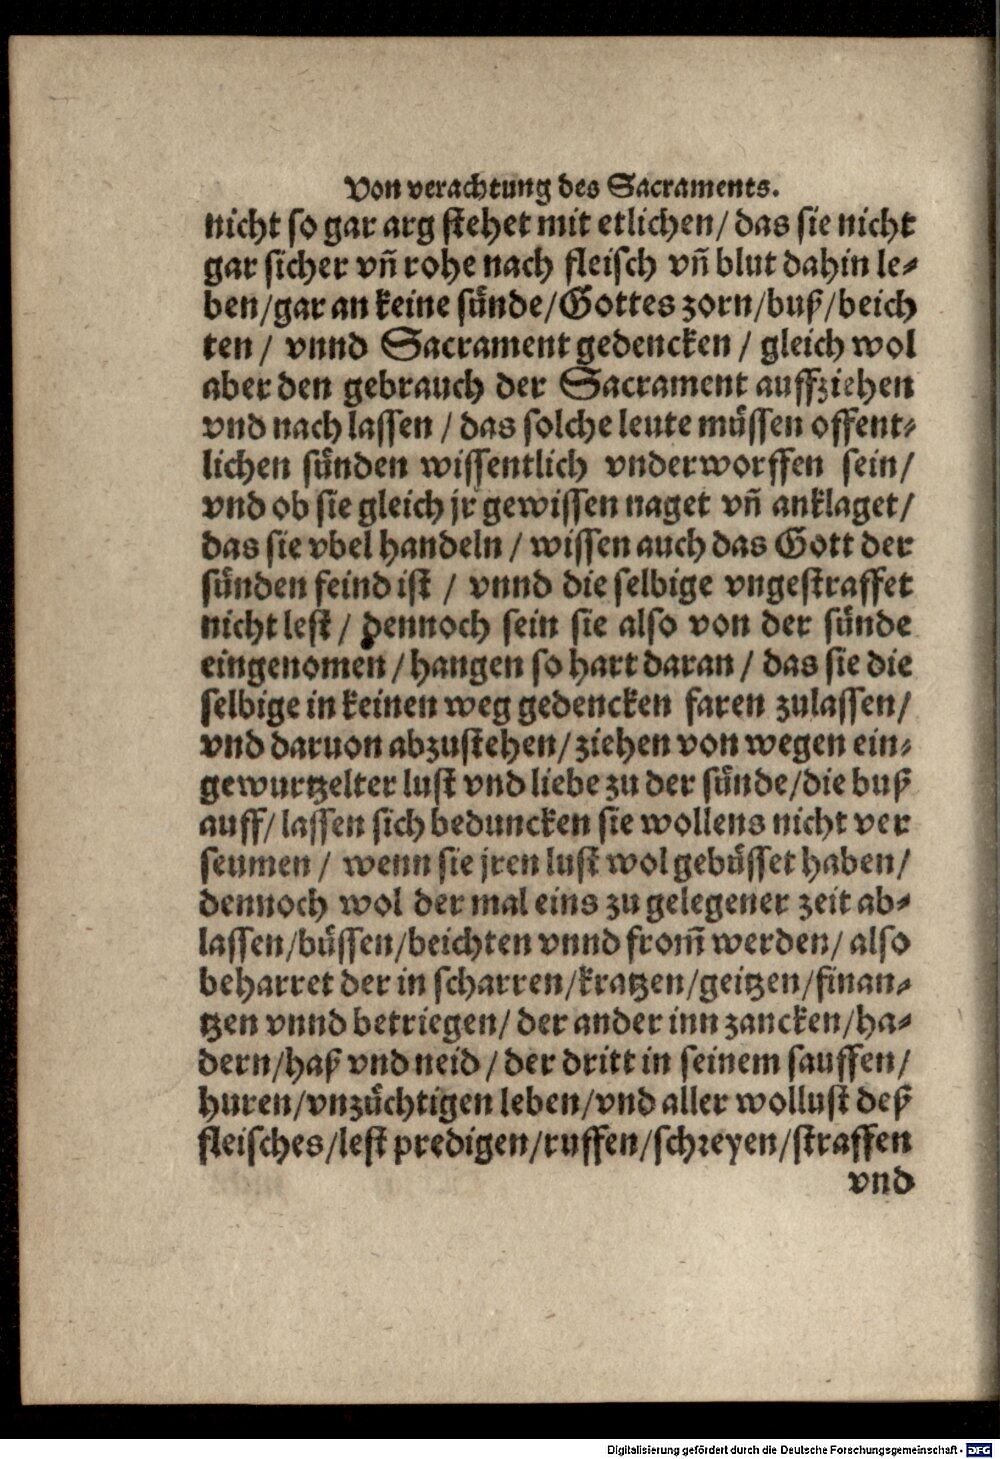 Von verachtung des Sacraments.
nicht so gar arg stehet mit etlichen/ das sie nicht
gar sicher vñ rohe nach fleisch vñ blut dahin le⸗
ben/gar an keine sünde/Gottes zorn/buß/beich
ten/ vnnd Sacrament gedencken / gleich wol
aber den gebrauch der Sacrament auffziehen
vnd nach lassen / das solche leute müssen offent⸗
lichen sünden wissentlich vnderworffen sein/
vnd ob sie gleich jr gewissen naget vñ anklaget/
das sie vbel handeln / wissen auch das Gott der
sünden feind ist / vnnd die selbige vngestraffet
nicht lest / dennoch sein sie also von der sünde
eingenomen / hangen so hart daran / das sie die
selbige in keinen weg gedencken faren zulassen/
vnd daruon abzustehen/ ziehen von wegen ein⸗
gewurtzelter lust vnd liebe zu der sünde/die buß
auff/ lassen sich beduncken sie wollens nicht ver
seumen / wenn sie jren lust wol gebüsset haben/
dennoch wol der mal eins zu gelegener zeit ab⸗
lassen/büssen/beichten vnnd from̃ werden/ also
beharret der in scharren/kratzen/geitzen/finan⸗
tzen vnnd betriegen/ der ander inn zancken/ha⸗
dern/haß vnd neid / der dritt in seinem sauffen/
huren/vnzüchtigen leben/vnd aller wollust deß
fleisches/lest predigen/ruffen/schreyen/straffen
vnd
Digitalisierung gefördert durch die Deutsche Forschungsgemeinschaft - DFG